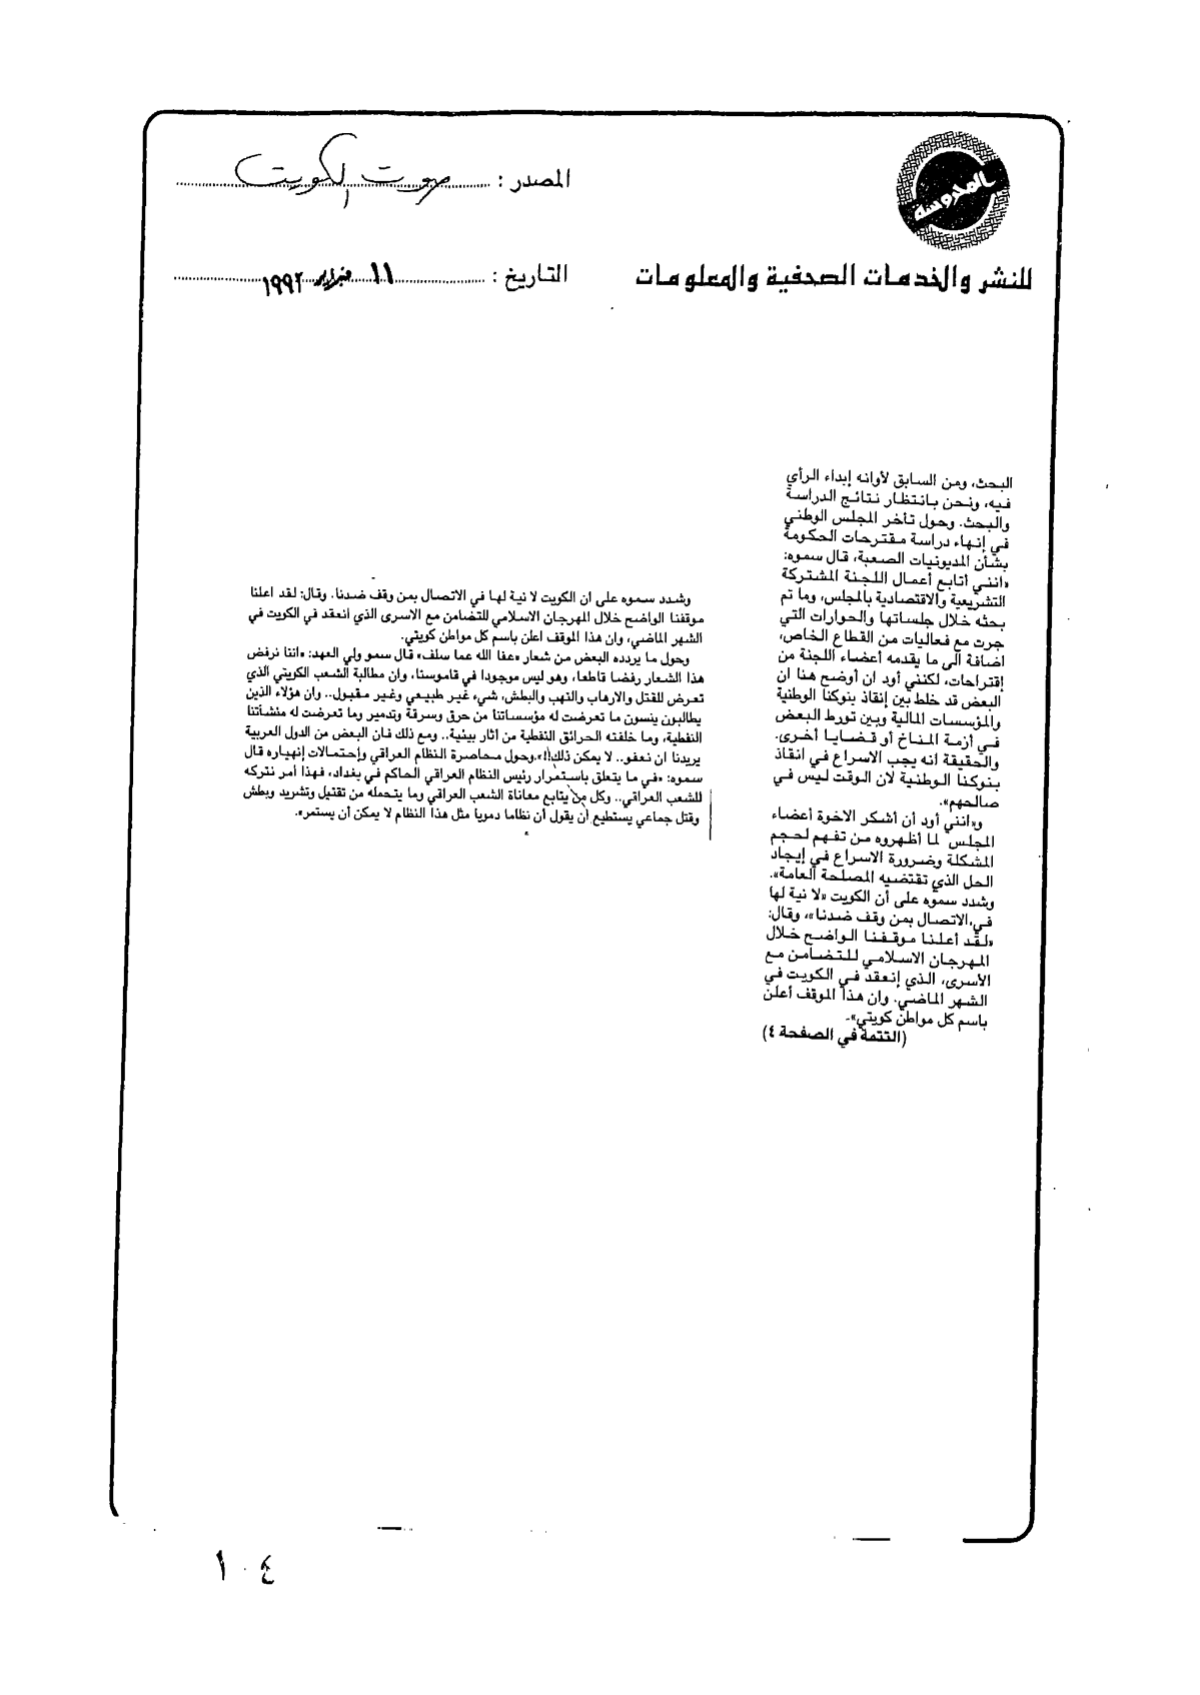 المحروسة
للنشر والخدمات الصحفية والمعلومات
المصدر : صوت الكويت
التاريخ : ١١ فبراير ١٩٩٢
البحث، ومن السابق لأوانه إبداء الرأي
فيه، ونحن بانتظار نتائج الدراسة
والبحث. وحول تأخر المجلس الوطني
في إنهاء دراسة مقترحات الحكومة
بشأن المديونيات الصعبة، قال سموه:
«انني أتابع أعمال اللجنة المشتركة
التشريعية والاقتصادية بالمجلس، وما تم
بحثه خلال جلساتها والحوارات التي
جرت مع فعاليات من القطاع الخاص،
اضافة الى ما يقدمه أعضاء اللجنة من
إقتراحات، لكنني أود ان أوضح هنا ان
البعض قد خلط بين إنقاذ بنوكنا الوطنية
والمؤسسات المالية وبين تورط البعض
في أزمة المناخ أو قضايا أخرى.
والحقيقة انه يجب الاسراع في انقاذ
بنوكنا الوطنية لان الوقت ليس في
صالحهم».
و«انني أود أن أشكر الاخوة أعضاء
المجلس لما أظهروه من تفهم لحجم
المشكلة وضرورة الاسراع في إيجاد
الحل الذي تقتضيه المصلحة العامة».
وشدد سموه على أن الكويت «لا نية لها
في الاتصال بمن وقف ضدنا»، وقال:
«لقد أعلنا موقفنا الواضح خلال
المهرجان الاسلامي للتضامن مع
الأسرى، الذي إنعقد في الكويت في
الشهر الماضي. وان هذا الموقف أعلن
باسم كل مواطن كويتي».
(التتمة في الصفحة ٤)
وشدد سموه على ان الكويت لا نية لها في الاتصال بمن وقف ضدنا، وقال: لقد اعلنا
موقفنا الواضح خلال المهرجان الاسلامي للتضامن مع الاسرى الذي انعقد في الكويت في
الشهر الماضي، وان هذا الموقف اعلن باسم كل مواطن كويتي.
وحول ما يردده البعض من شعار «عفا الله عما سلف» قال سمو ولي العهد: «اننا نرفض
هذا الشعار رفضا قاطعا، وهو ليس موجودا في قاموسنا، وان مطالبة الشعب الكويتي الذي
تعرض للقتل والارهاب والنهب والبطش، شيء غير طبيعي وغير مقبول.. وان هؤلاء الذين
يطالبون ينسون ما تعرضت له مؤسساتنا من حرق وسرقة وتدمير وما تعرضت له منشأتنا
النفطية، وما خلفته الحرائق النفطية من اثار بيئية.. ومع ذلك فان البعض من الدول العربية
يريدنا ان نعفو.. لا يمكن ذلك!». وحول محاصرة النظام العراقي وإحتمالات إنهياره قال
سموه: «في ما يتعلق باستمرار رئيس النظام العراقي الحاكم في بغداد، فهذا أمر نتركه
للشعب العراقي.. وكل من يتابع معاناة الشعب العراقي وما يتحمله من تقتيل وتشريد وبطش
وقتل جماعي يستطيع أن يقول أن نظاما دمويا مثل هذا النظام لا يمكن أن يستمر».
١٠٤